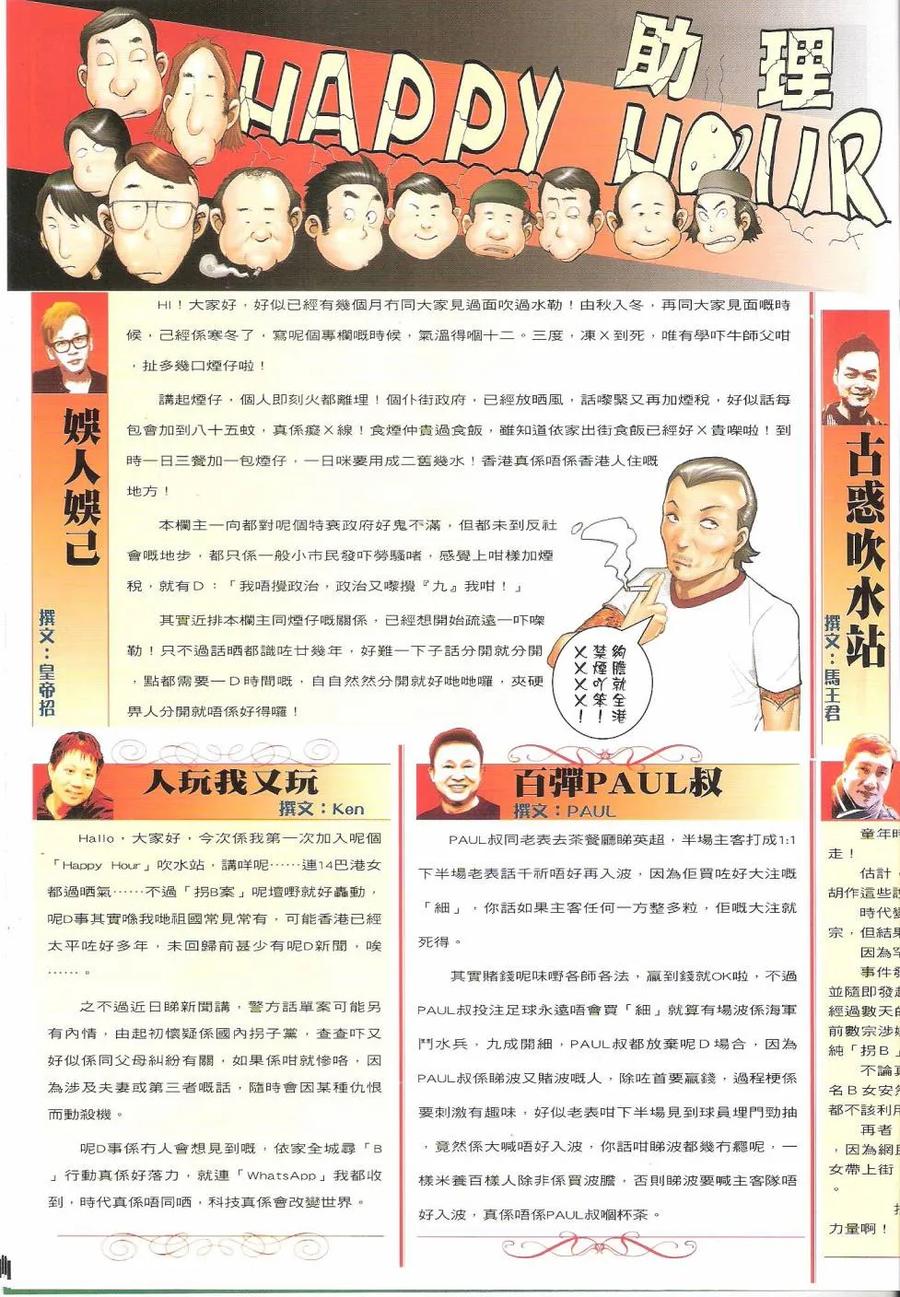 助理
HAPPY HOUR
娛人娛己
撰文：皇帝招
HI！大家好，好似已經有幾個月冇同大家見過面吹過水勒！由秋入冬，再同大家見面嘅時
候，己經係寒冬了，寫呢個專欄嘅時候，氣溫得嗰十二。三度，凍X到死，唯有學吓牛師父咁
，扯多幾口煙仔啦！
講起煙仔，個人即刻火都離埋！個仆街政府，已經放晒風，話嚟緊又再加煙稅，好似話每
包會加到八十五蚊，真係癡X線！食煙仲貴過食飯，雖知道依家出街食飯已經好X貴㗎啦！到
時一日三餐加一包煙仔，一日咪要用成二舊幾水！香港真係唔係香港人住嘅
地方！
本欄主一向都對呢個特衰政府好鬼不滿，但都未到反社
會嘅地步，都只係一般小市民發吓勞騷啫，感覺上咁樣加煙
稅，就有D：「我唔攪政治，政治又嚟攪『九』我咁！」
其實近排本欄主同煙仔嘅關係，已經想開始疏遠一吓㗎
勒！只不過話晒都識咗廿幾年，好難一下子話分開就分開
，點都需要一D時間嘅，自自然然分開就好哋哋囉，夾硬
畀人分開就唔係好得囉！
夠膽就全港
禁煙吖笨！
XXXX！
古惑吹水站
撰文：馬王君
人玩我又玩
撰文：Ken
Hallo，大家好，今次係我第一次加入呢個
「Happy Hour」吹水站，講咩呢……連14巴港女
都過晒氣……不過「拐B案」呢壇嘢就好轟動，
呢D事其實喺我哋祖國常見常有，可能香港已經
太平咗好多年，未回歸前甚少有呢D新聞，唉
……。
之不過近日睇新聞講，警方話單案可能另
有內情，由起初懷疑係國內拐子黨，查查吓又
好似係同父母糾紛有關，如果係咁就慘咯，因
為涉及夫妻或第三者嘅話，隨時會因某種仇恨
而動殺機。
呢D事係冇人會想見到嘅，依家全城尋「B
」行動真係好落力，就連「WhatsApp」我都收
到，時代真係唔同哂，科技真係會改變世界。
百彈PAUL叔
撰文：PAUL
PAUL叔同老表去茶餐廳睇英超，半場主客打成1:1
下半場老表話千祈唔好再入波，因為佢買咗好大注嘅
「細」，你話如果主客任何一方整多粒，佢嘅大注就
死得。
其實賭錢呢味嘢各師各法，贏到錢就OK啦，不過
PAUL叔投注足球永遠唔會買「細」就算有場波係海軍
鬥水兵，九成開細，PAUL叔都放棄呢D場合，因為
PAUL叔係睇波又賭波嘅人，除咗首要贏錢，過程梗係
要刺激有趣味，好似老表咁下半場見到球員埋門勁抽
，竟然係大喊唔好入波，你話咁睇波都幾冇癮呢，一
樣米養百樣人除非係買波膽，否則睇波要喊主客隊唔
好入波，真係唔係PAUL叔嗰杯茶。
童年時
走！
估計，
胡作這些說
時代變
宗，但結果
因為罕
事件發
並隨即發起
經過數天的
前數宗涉嫌
純「拐B」
不論真
名B女安然
都不該利用
再者
，因為網民
女帶上街，
。
力量啊！